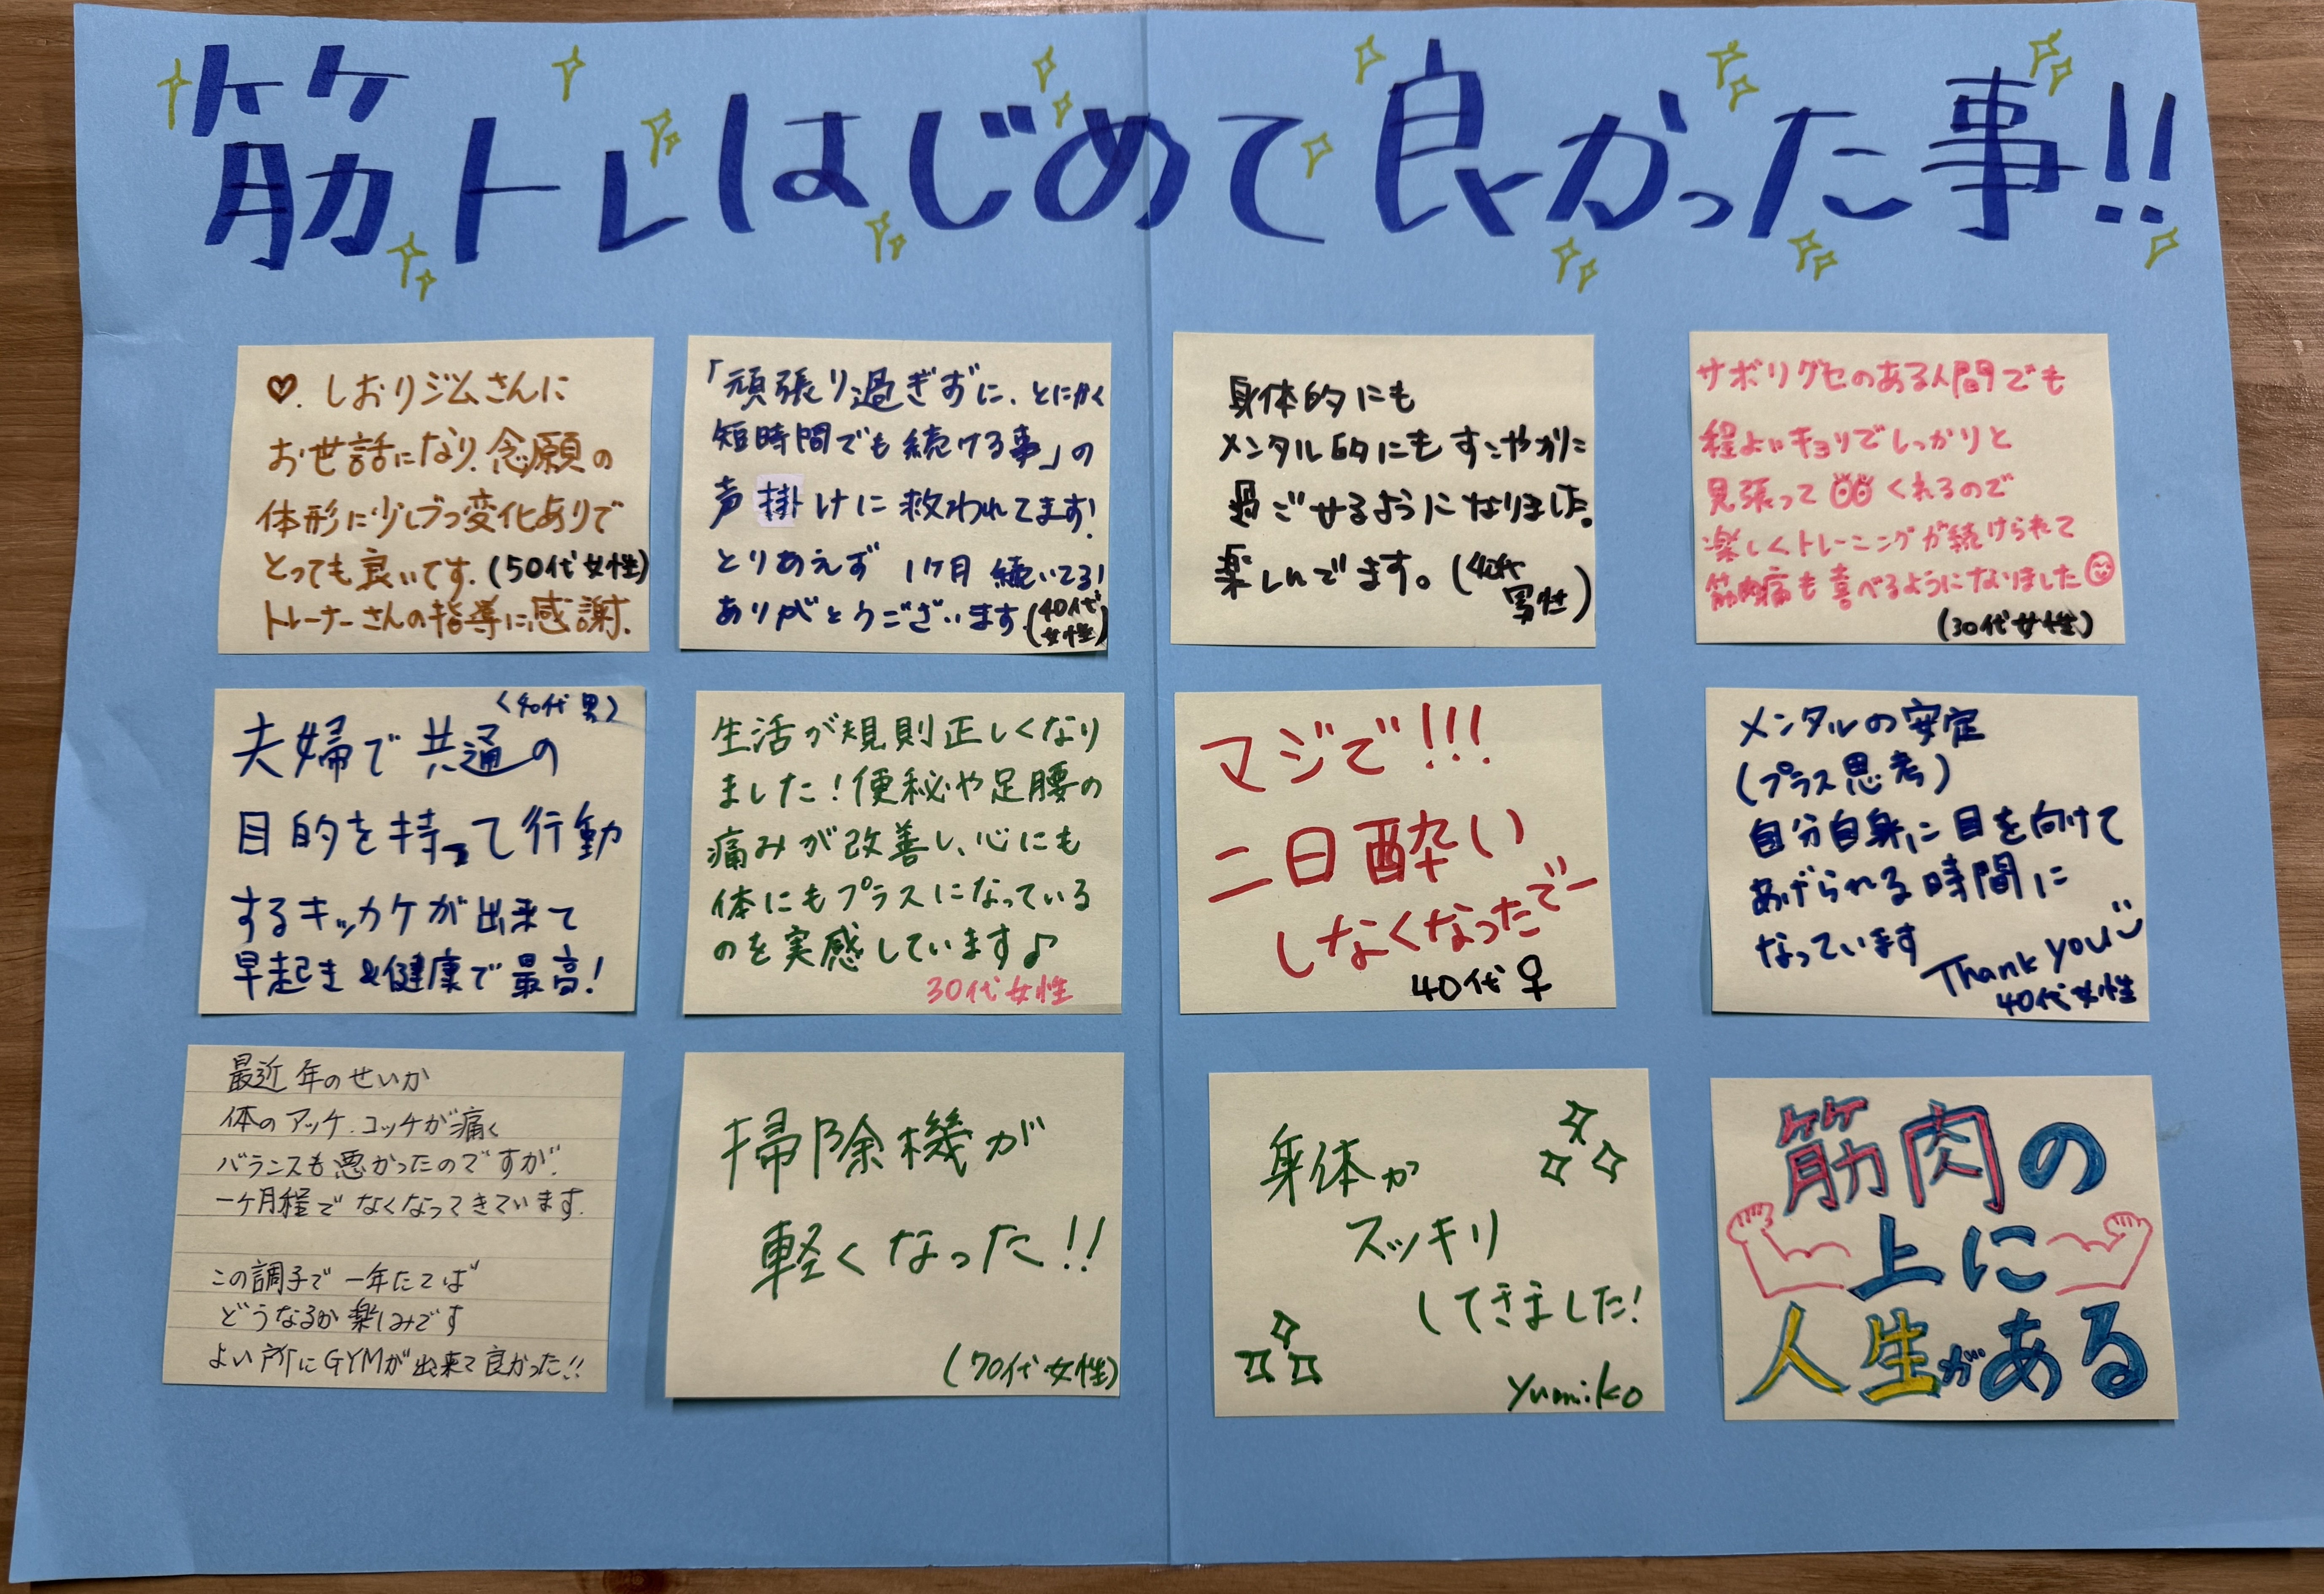 筋トレはじめて良かった事!!
♡. しおりジムさんに
お世話になり、念願の
体形に少しづつ変化ありで
とっても良いです。(50代 女性)
トレーナーさんの指導に感謝。
「頑張り過ぎずに、とにかく
短時間でも続ける事」の
声掛けに救われてます!
とりあえず 1ヶ月 続いてる!
ありがとうございます。(40代
女性)
身体的にも
メンタル的にもすこやかに
過ごせるようになりました。
楽しんでます。(40代
男性)
サボリグセのある人間でも
程よいキョリでしっかりと
見張ってくれるので
楽しくトレーニングが続けられて
筋肉痛も喜べるようになりました
(30代女性)
<40代 男>
夫婦で共通の
目的を持って行動
するキッカケが出来て
早起き&健康で最高!
生活が規則正しくなり
ました!便秘や足腰の
痛みが改善し、心にも
体にもプラスになっている
のを実感しています♪
30代女性
マジで!!!
二日酔い
しなくなったでー
40代♀
メンタルの安定
(プラス思考)
自分自身に目を向けて
あげられる時間に
なっています
Thank you
40代女性
最近年のせいか
体のアッチ.コッチが痛く
バランスも悪かったのですが.
一ヶ月程でなくなってきています.
この調子で一年たてば
どうなるか楽しみです
よい所にGYMが出来て良かった!!
掃除機が
軽くなった!!
(70代 女性)
身体が
スッキリ
してきました!
Yumiko
筋肉の
上に
人生がある